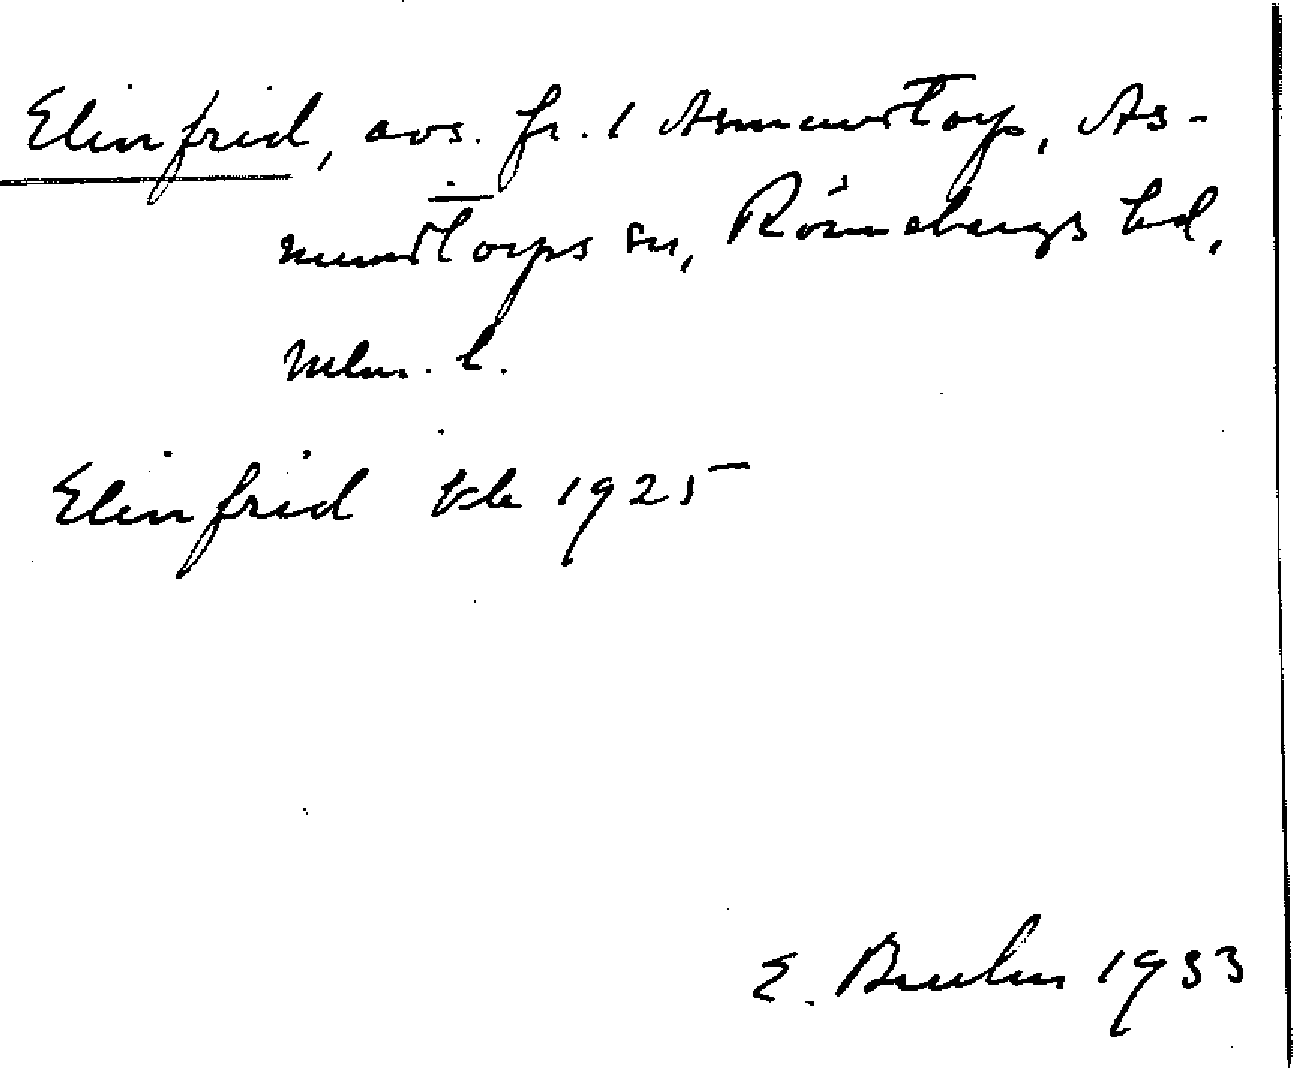 Elinfrid, avs. fr. 1 Asmundtorp, As-
mundtorps sn, Rönnebergs hd,
Mlm. l.
Elinfrid tele 1925
E. 1933